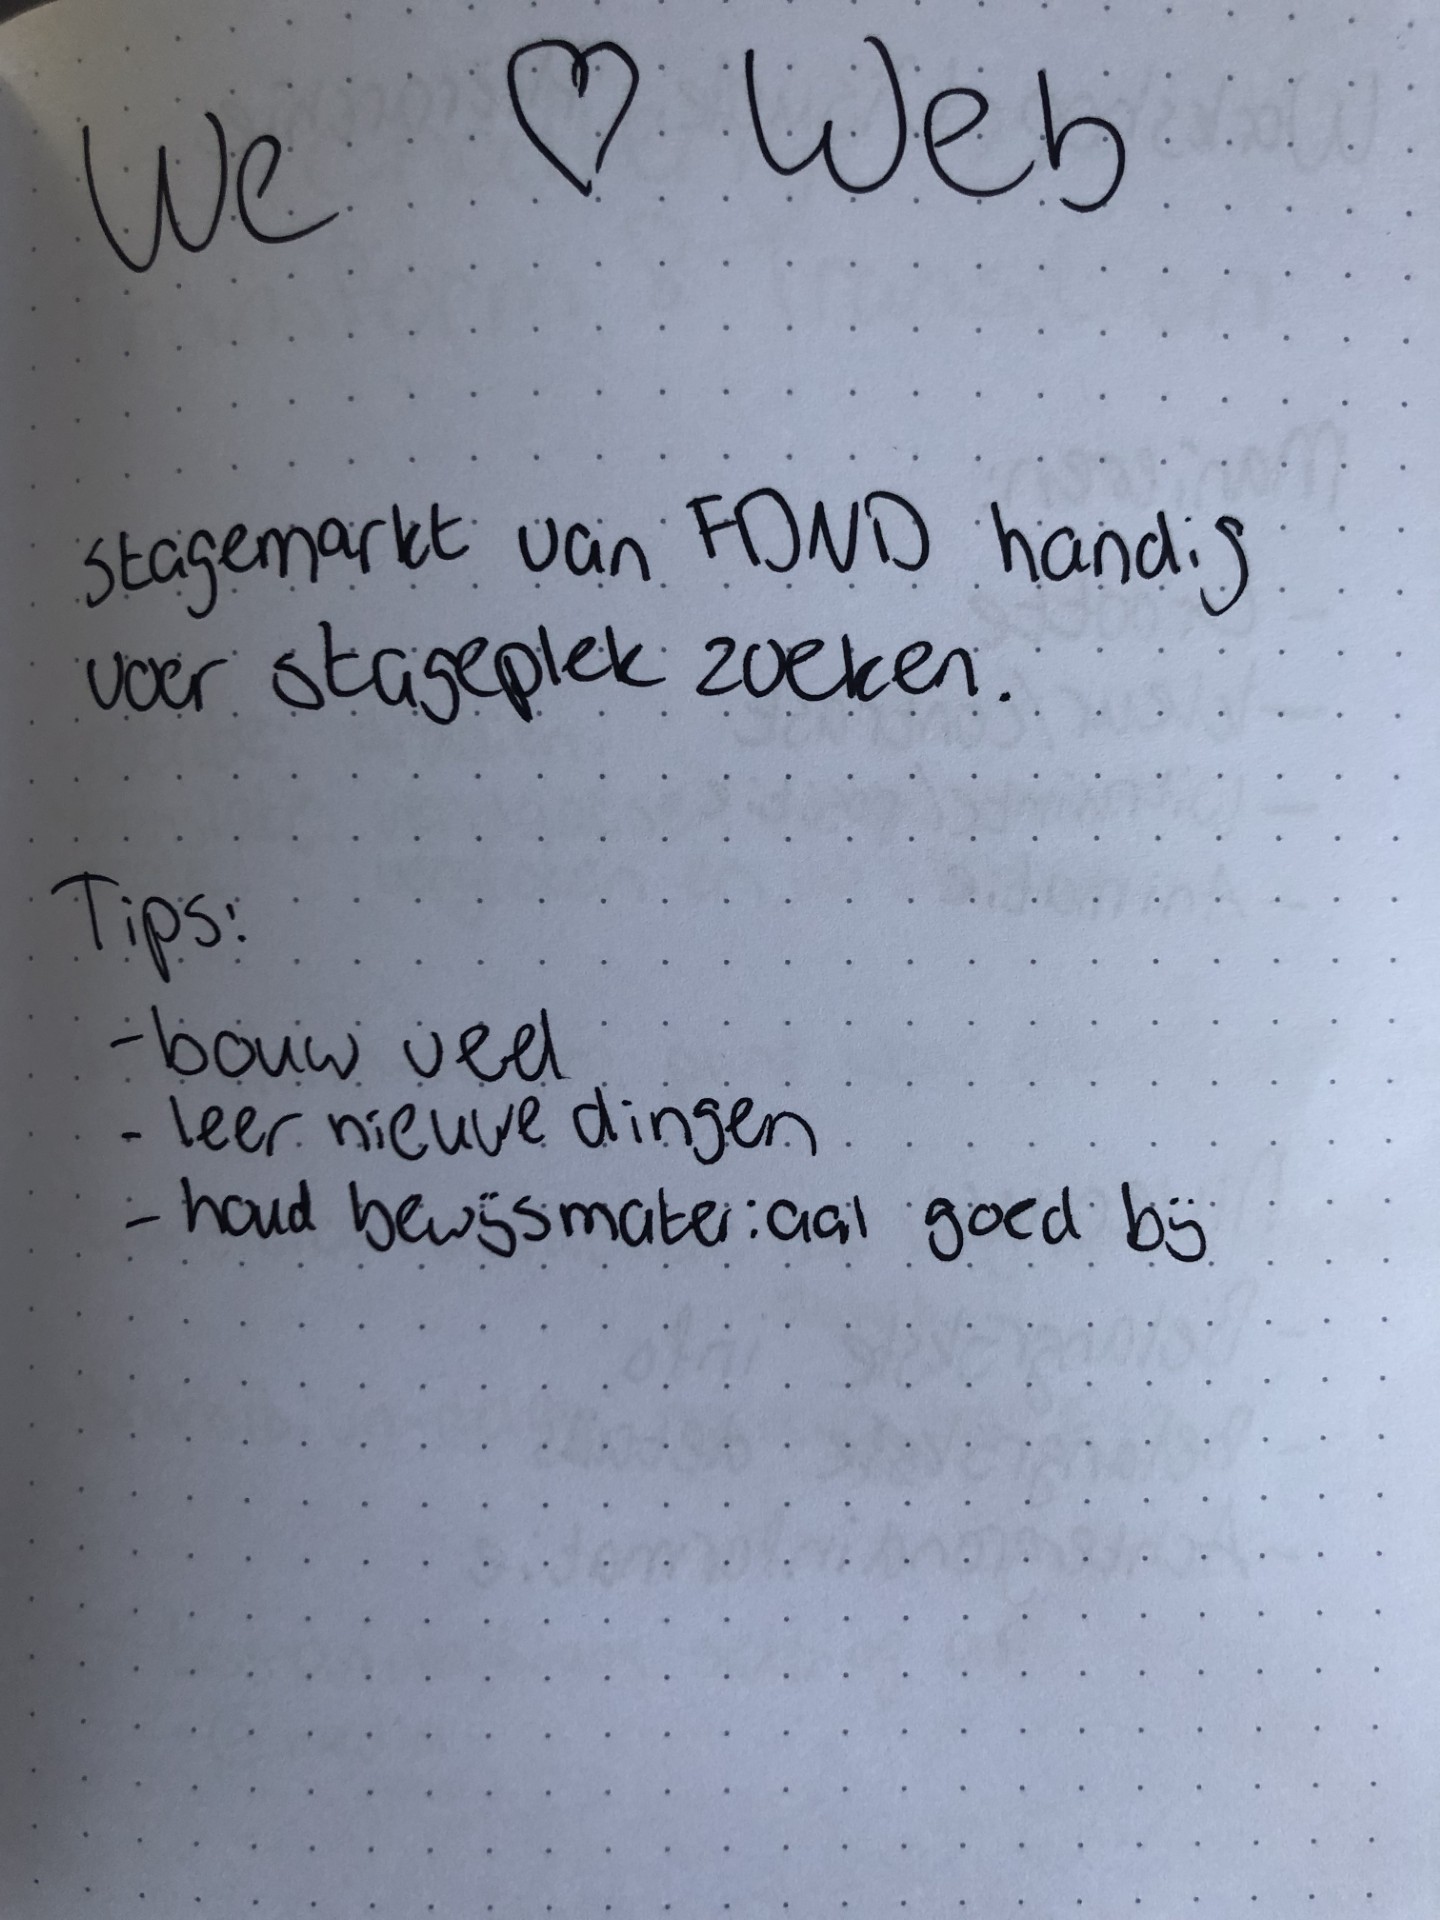 We ♡ Web
stagemarkt van FDND handig
voor stageplek zoeken.
Tips:
- bouw veel
- leer nieuwe dingen
- houd bewijsmateriaal goed bij